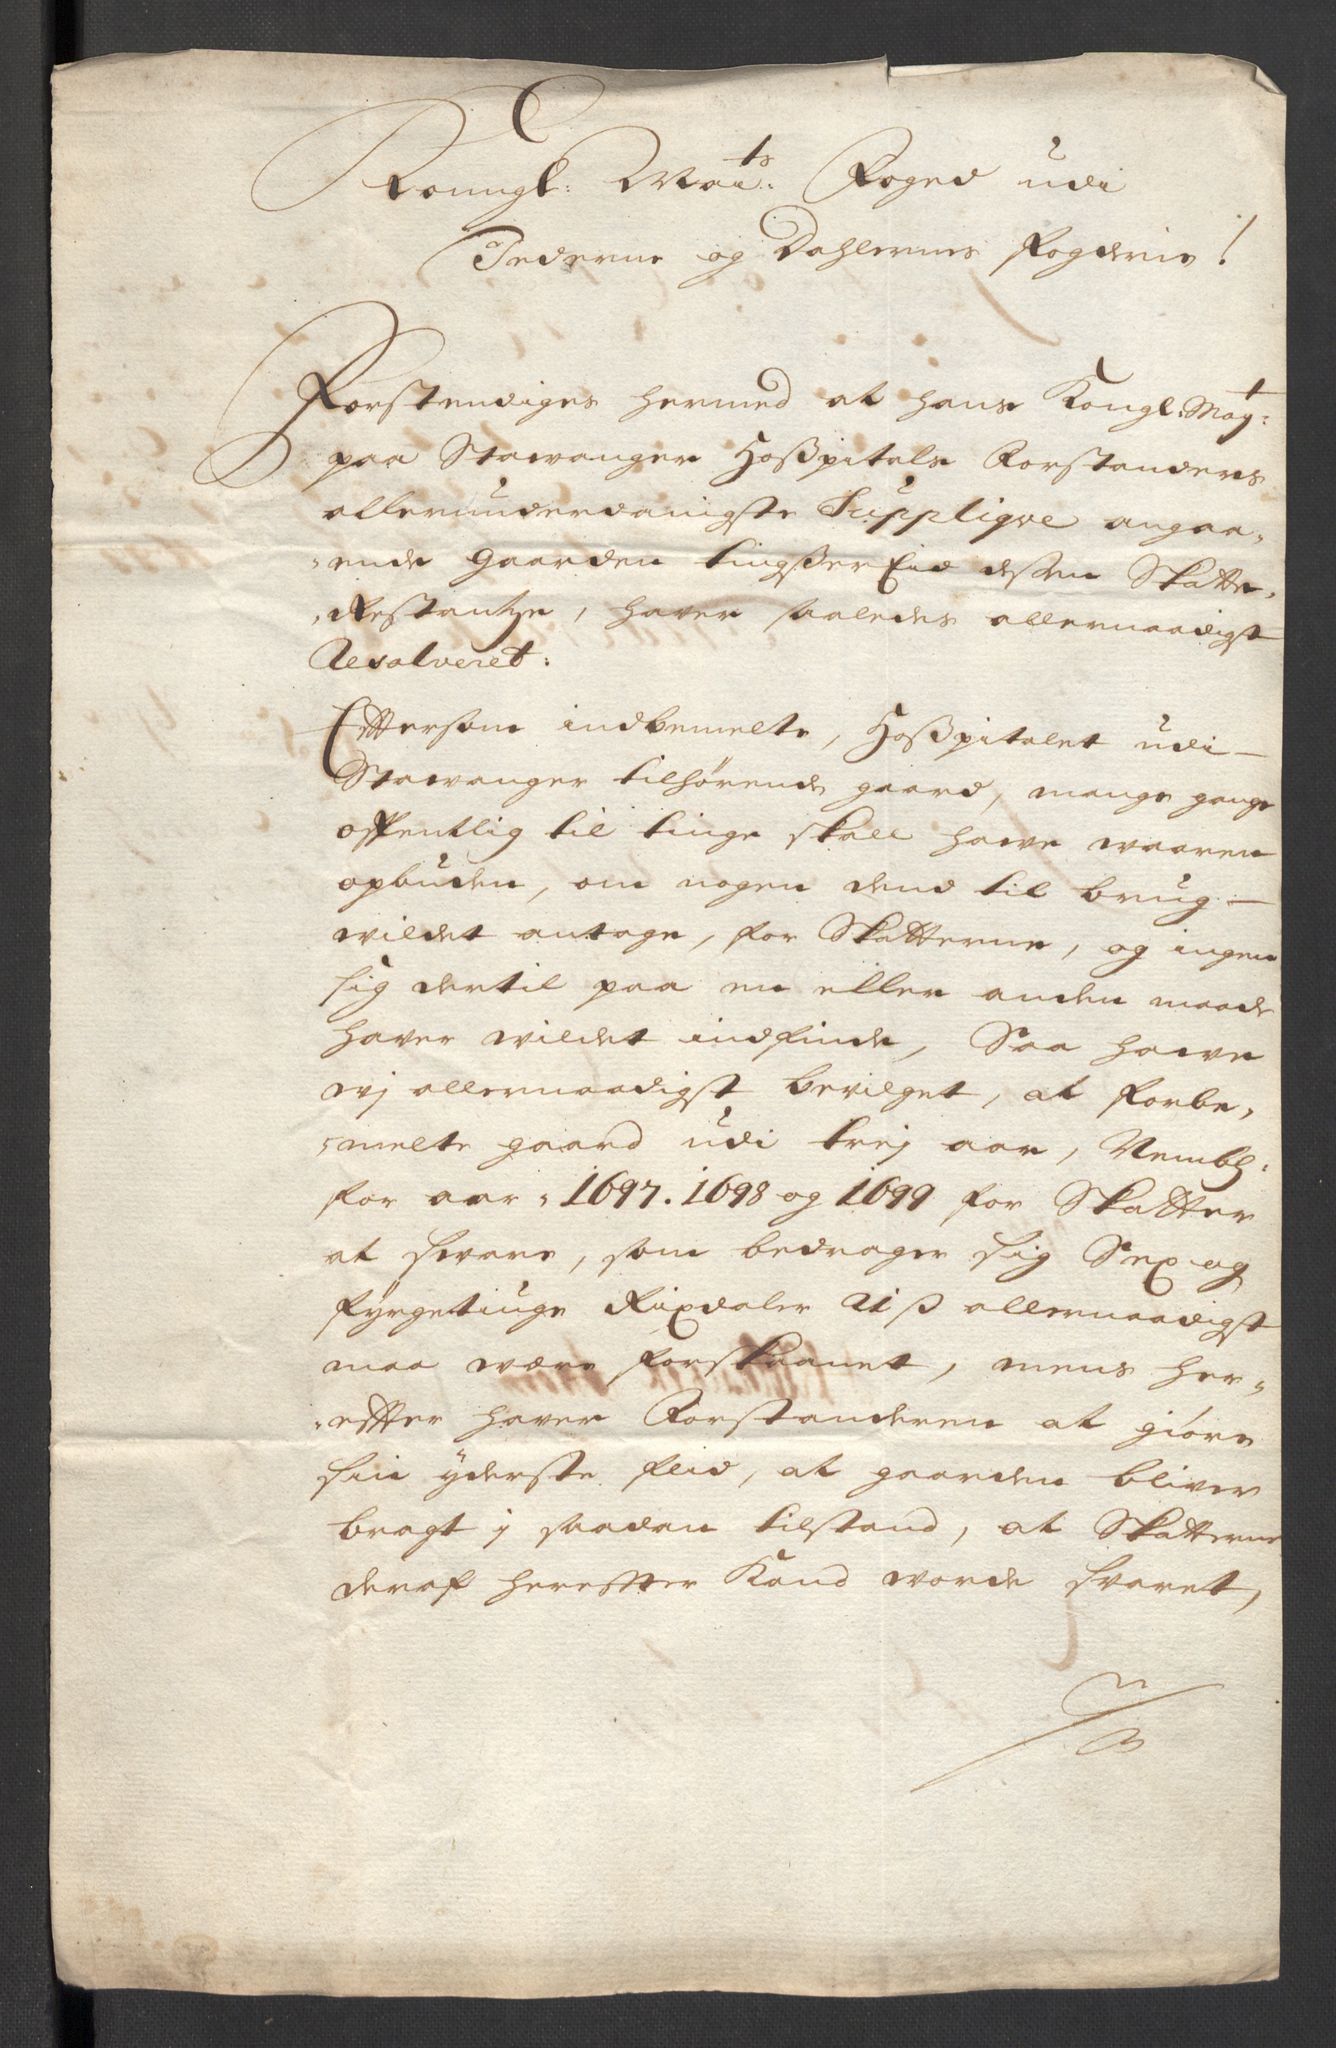 Konngl: Maits: Foged udi
Jederne og Dahlernes fogderie!
Forstendiges hermed at hans Kongl: May:t
paa Stawanger Hoßpitals Forstanders
allerunderdanigste Supplique angaa-
-ende gaarden tingßer Eid dessen Skatte-
-Restantze, haver saaledes allernaadigst
Resolveret:
Effterson indbemelte, Hoßpitalet udi
Stawanger tilhørende gaard, mange gange
offentlig til tinge skall hawe waaren
opbuden, om nogen dend til brug
wildet antage, for Skatterne, og ingen
sig dertil paa en eller anden maade
haver wildet indfinde, Saa hawe
wj allernaadigst bevilget, at forbe-
-melte gaard udi trej aar, Nembl:
for aar 1697. 1698 og 1699 for Skatter
at svare, som bedrager sig Sex og
fyrgetiuge Rixdaler 21 ß allernaadigst
maa være forskaanet, mens her-
-effter haver Forstanderen at giøre
sin yderste flid, at gaarden bliver
bragt j saadan tilstand, at Skatterne
deraf hereffter Kand worde svaret,